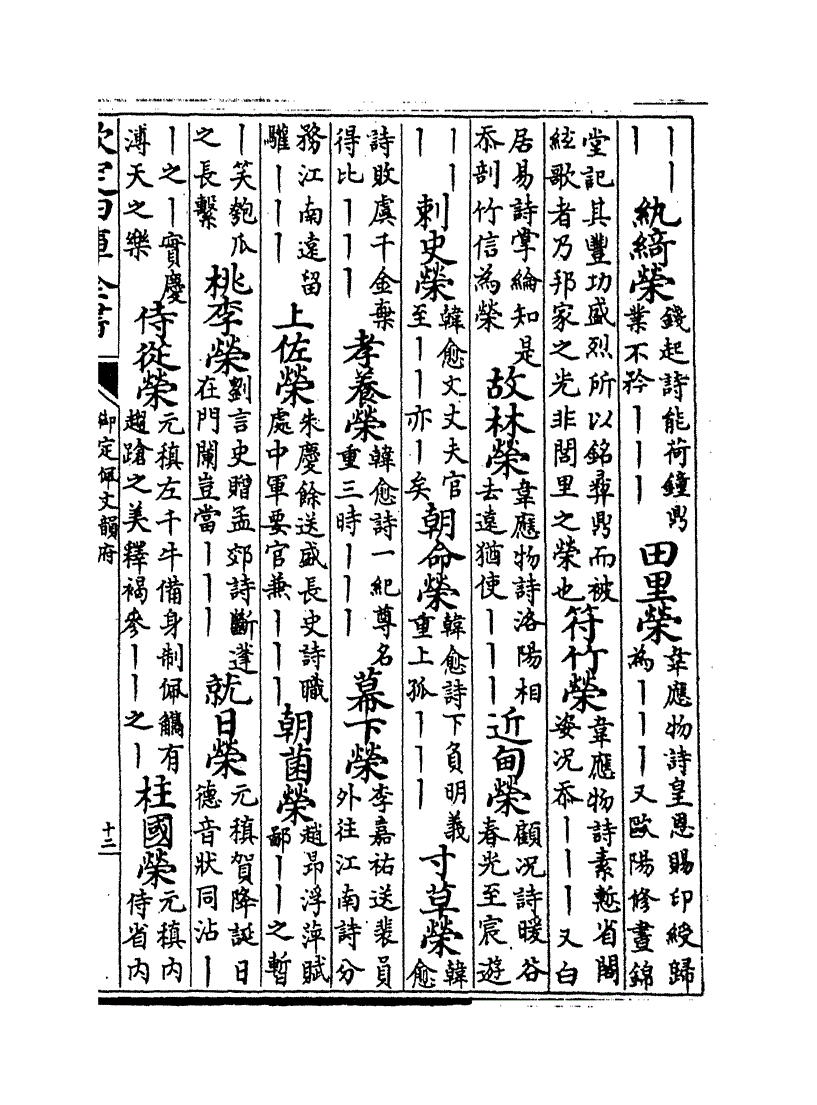 ｜｜
｜
紈綺榮
錢起詩能荷鐘鼎
業不矜｜｜｜
田里榮
韋應物詩皇恩賜印綬歸
為｜｜｜又歐陽修晝錦
堂記其豐功盛烈所以銘彞鼎而被
絃歌者乃邦家之光非閭里之榮也
符竹榮
韋應物詩素慙省閣
姿况忝｜｜｜又白
居易詩掌綸知是
忝剖竹信為榮
故林榮
韋應物詩洛陽相
去遠猶使｜｜｜
近甸榮
顧况詩暖谷
春光至宸遊
｜｜
｜
刺史榮
韓愈文丈夫官
至｜｜亦｜矣
朝命榮
韓愈詩下負明義
重上孤｜｜｜
寸草榮
韓
愈
詩敢虞千金棄
得比｜｜｜
孝養榮
韓愈詩一紀尊名
重三時｜｜｜
幕下榮
李嘉祐送裴員
外往江南詩分
務江南遠留
驩｜｜｜
上佐榮
朱慶餘送盛長史詩職
處中軍要官兼｜｜｜
朝菌榮
趙昂浮萍賦
鄙｜｜之暫
｜笑匏瓜
之長繫
桃李榮
劉言史贈孟郊詩斷蓬
在門闌豈當｜｜｜
就日榮
元稹賀降誕日
德音狀同沾｜
｜之｜實慶
溥天之樂
侍從榮
元稹左千牛備身制佩觿有
趨蹌之美釋褐參｜｜之｜
柱國榮
元稹内
侍省内
欽定四庫全書
御定佩文韻府
十二